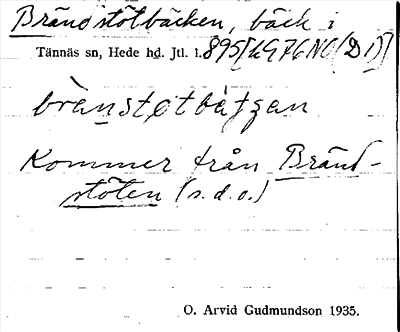 Brändstötbäcken, bäck i
Tännäs sn, Hede hd. Jtl. l. 895
brènstøtbät
Kommer från Bränd-
stöten (s.d.o.)
O. Arvid Gudmundson 1935.